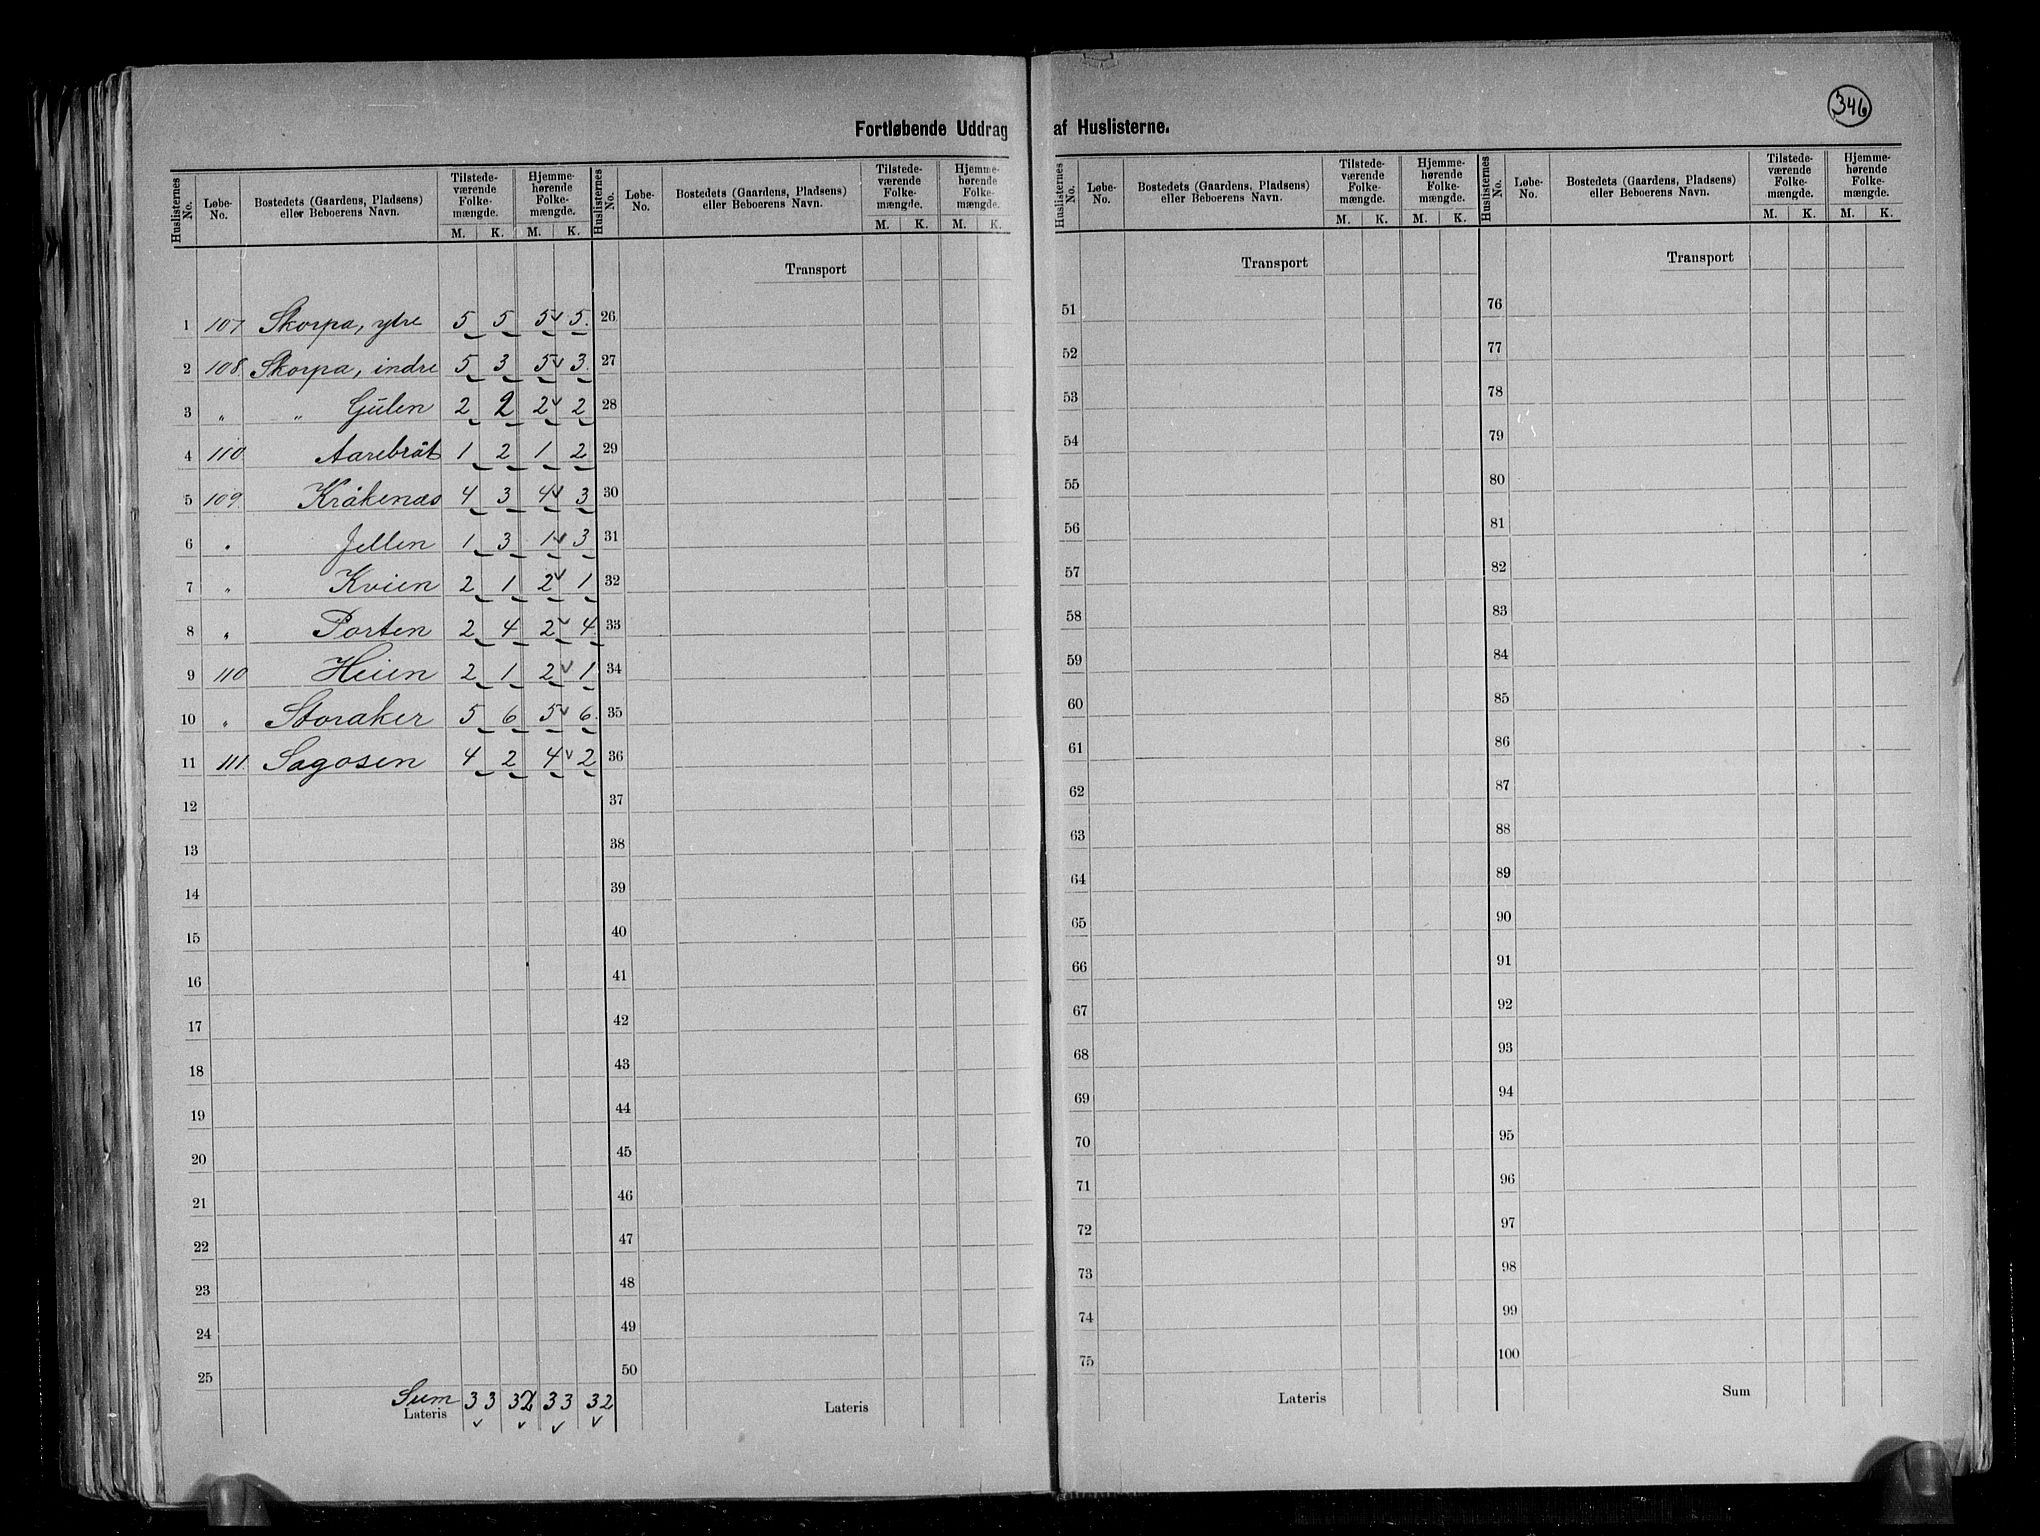 346
Fortløbende Uddrag af Huslisterne.
Huslisternes No. Løbe-No. Bostedets (Gaarden­s, Pladsen) eller Beboerens Navn. Tilstede-værende Folke-mængde. Hjemme-hørende Folke-mængde.
M. K. M. K.
1 107 Skorpa, ytre 5 5 5 5
2 108 Skorpa, indre 5 3 5 3
3 " " Gulen 2 2 2 2
4 110 Aarebröt 1 2 1 2
5 109 Kråkenæs 4 3 4 3
6 " Jellen 1 3 1 3
7 " Kvien 2 1 2 1
8 " Porten 2 4 2 4
9 110 Heien 2 1 2 1
10 " Storaker 5 6 5 6
11 111 Sagosen 4 2 4 2
12
13
14
15
16
17
18
19
20
21
22
23
24
25
Sum 33 32 33 32
Lateris
Huslisternes No. Løbe-No. Bostedets (Gaardens, Pladsen) eller Beboerens Navn. Tilstede-værende Folke-mængde. Hjemme-hørende Folke-mængde.
M. K. M. K.
Transport
26
27
28
29
30
31
32
33
34
35
36
37
38
39
40
41
42
43
44
45
46
47
48
49
50
Lateris
Huslisternes No. Løbe-No. Bostedets (Gaardens, Pladsen) eller Beboerens Navn. Tilstede-værende Folke-mængde. Hjemme-hørende Folke-mængde.
M. K. M. K.
Transport
51
52
53
54
55
56
57
58
59
60
61
62
63
64
65
66
67
68
69
70
71
72
73
74
75
Lateris
Huslisternes No. Løbe-No. Bostedets (Gaardens, Pladsen) eller Beboerens Navn. Tilstede-værende Folke-mængde. Hjemme-hørende Folke-mængde.
M. K. M. K.
Transport
76
77
78
79
80
81
82
83
84
85
86
87
88
89
90
91
92
93
94
95
96
97
98
99
100
Sum